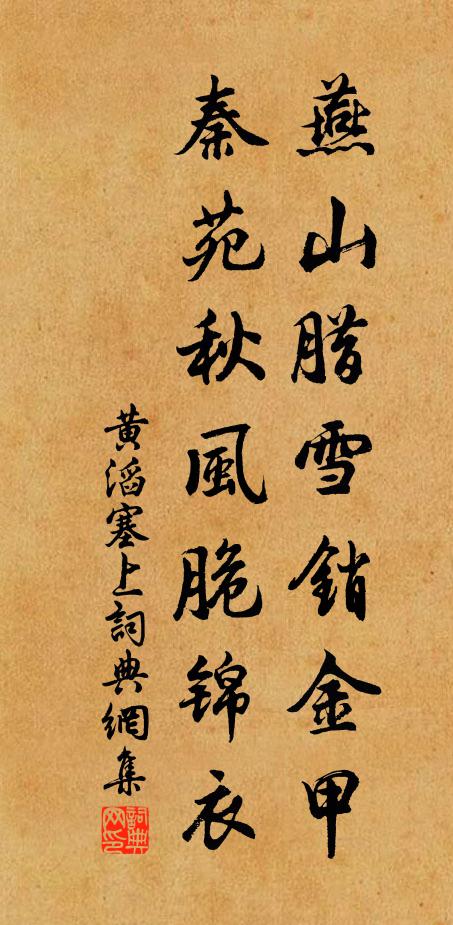 燕山腊雪銷金甲
秦苑秋風脆锦衣
黄滔塞上詞典網集
詞典網印